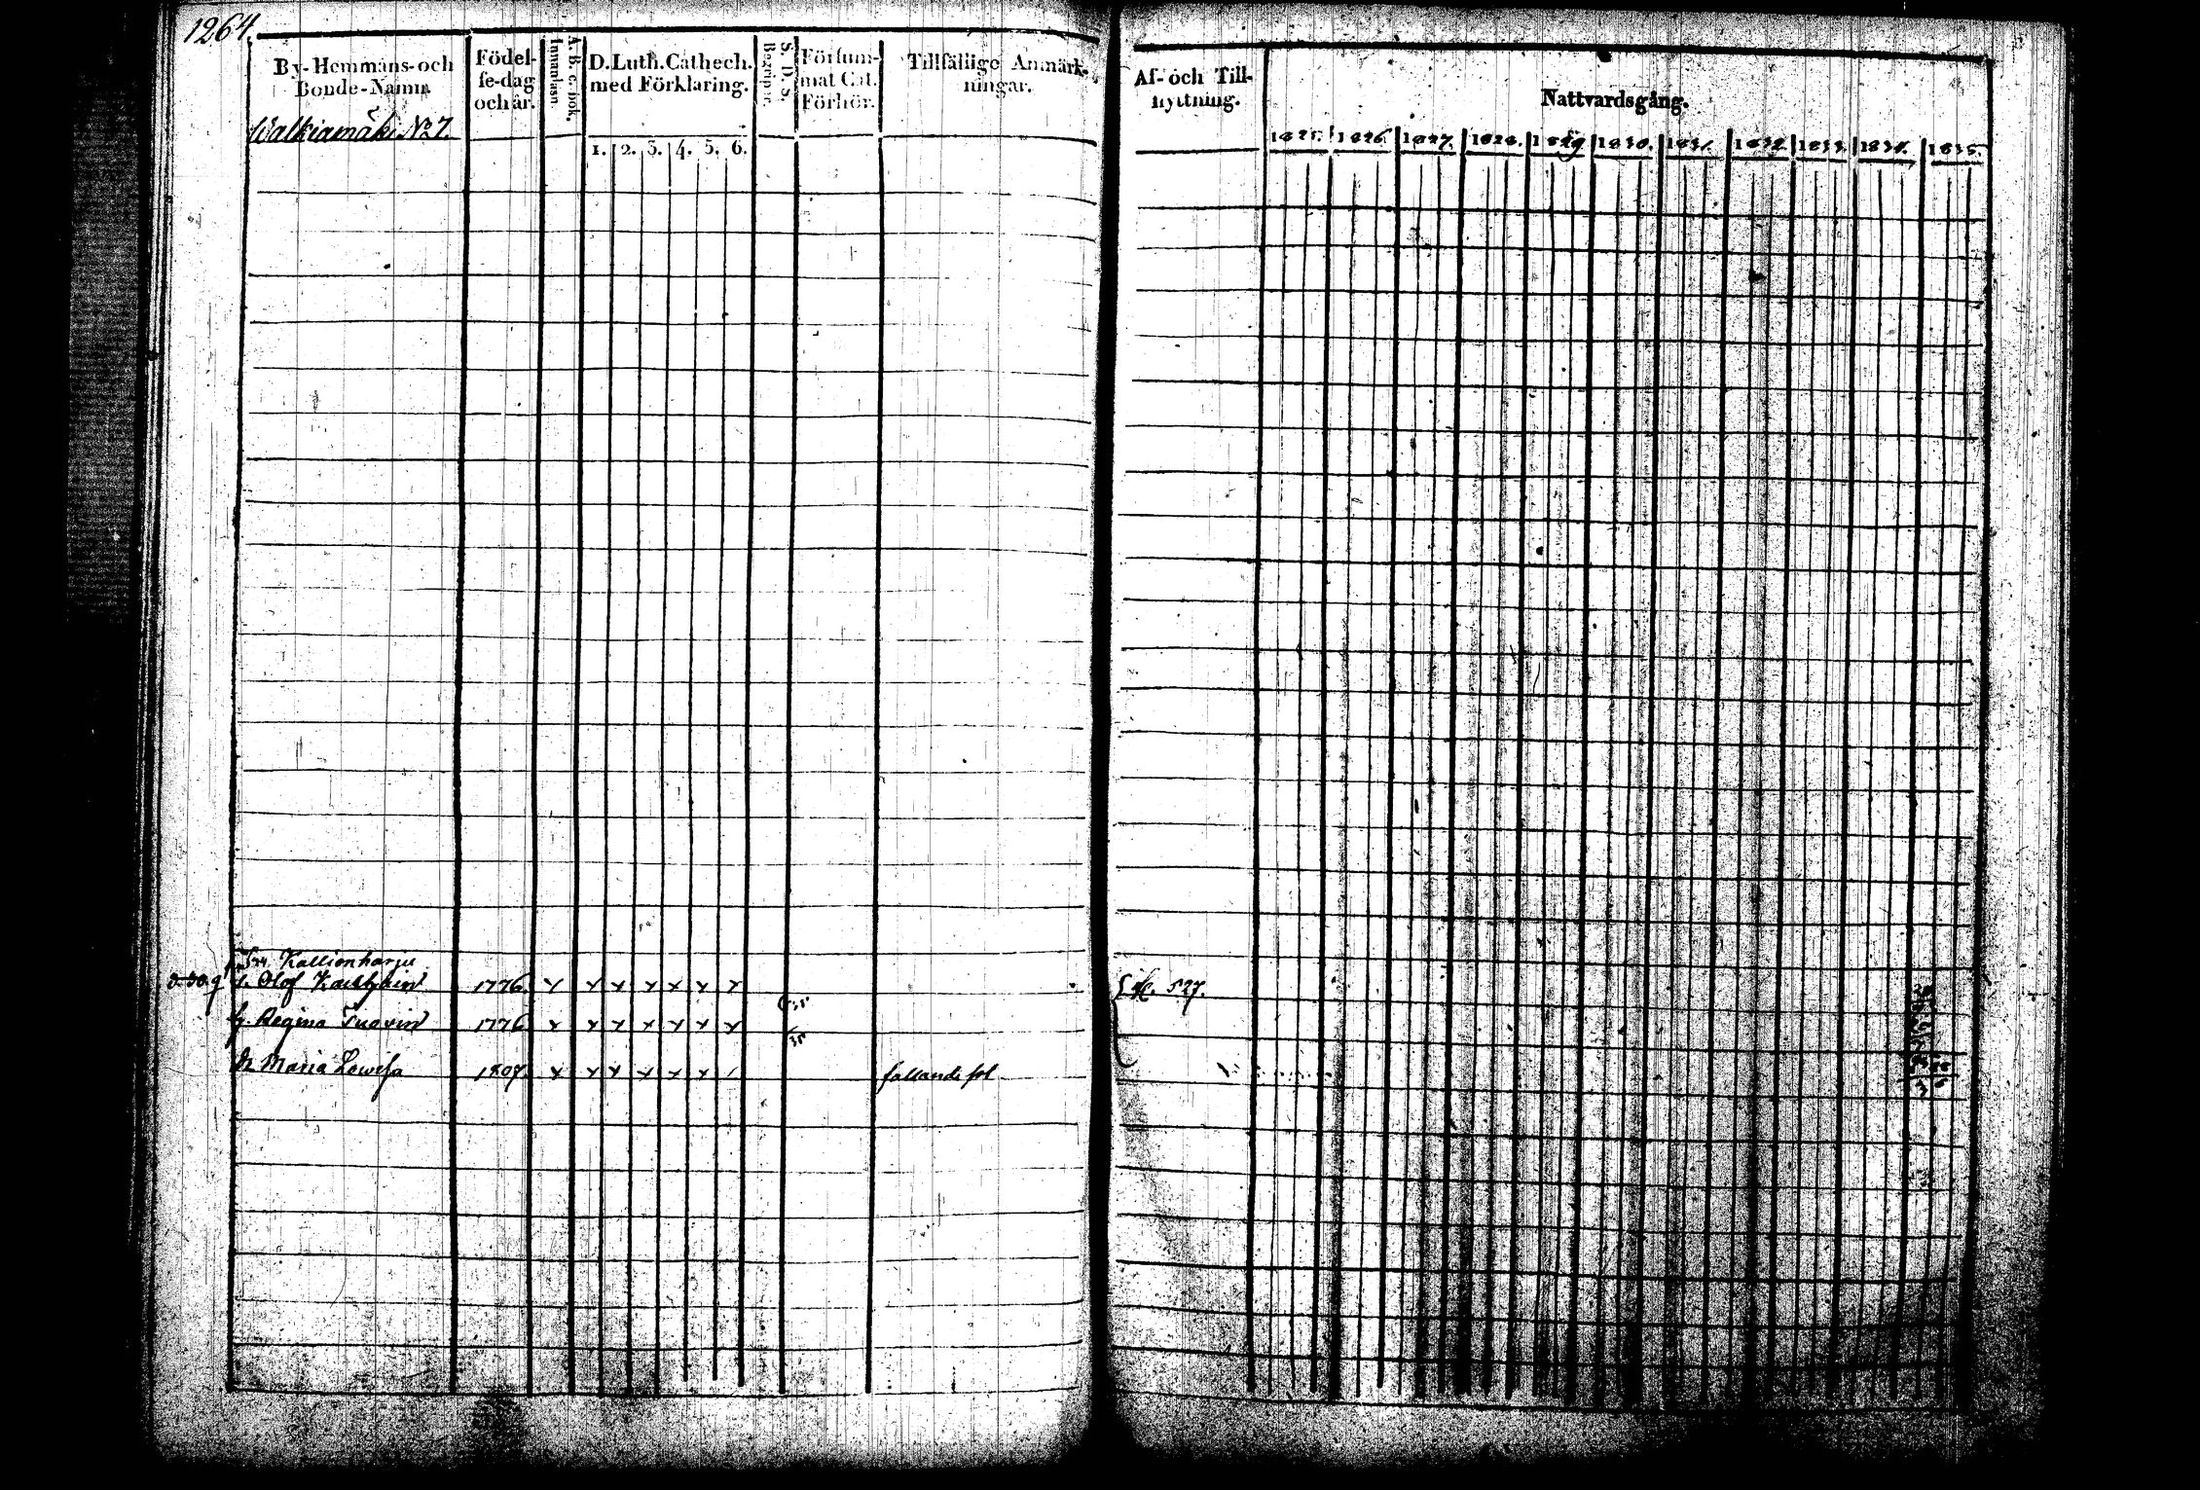 1264.
By-Hemmans-och Bonde-Namn
Födel-se-dag och år.
A. B. c. bok. Innantläsn.
D. Luth. Cathech. med Förklaring.
S. D. S. Begrepp.
Försum-mat Cat. Förhör.
Tillfällige Anmärk-ningar.
Af- och Till-flyttning.
Nattvardsgång.
Walkiamäki No 7.
1. 2. 3. 4. 5. 6.
1825. 1826. 1827. 1828. 1829 1830. 1831. 1832 1833. 1834. 1835.
Kallionharju
Olof 1776. x x x x x x x
527.
Regina 1776 x x x x x x x
Maria Lowisa 1807. x x x x x x
fallande fol